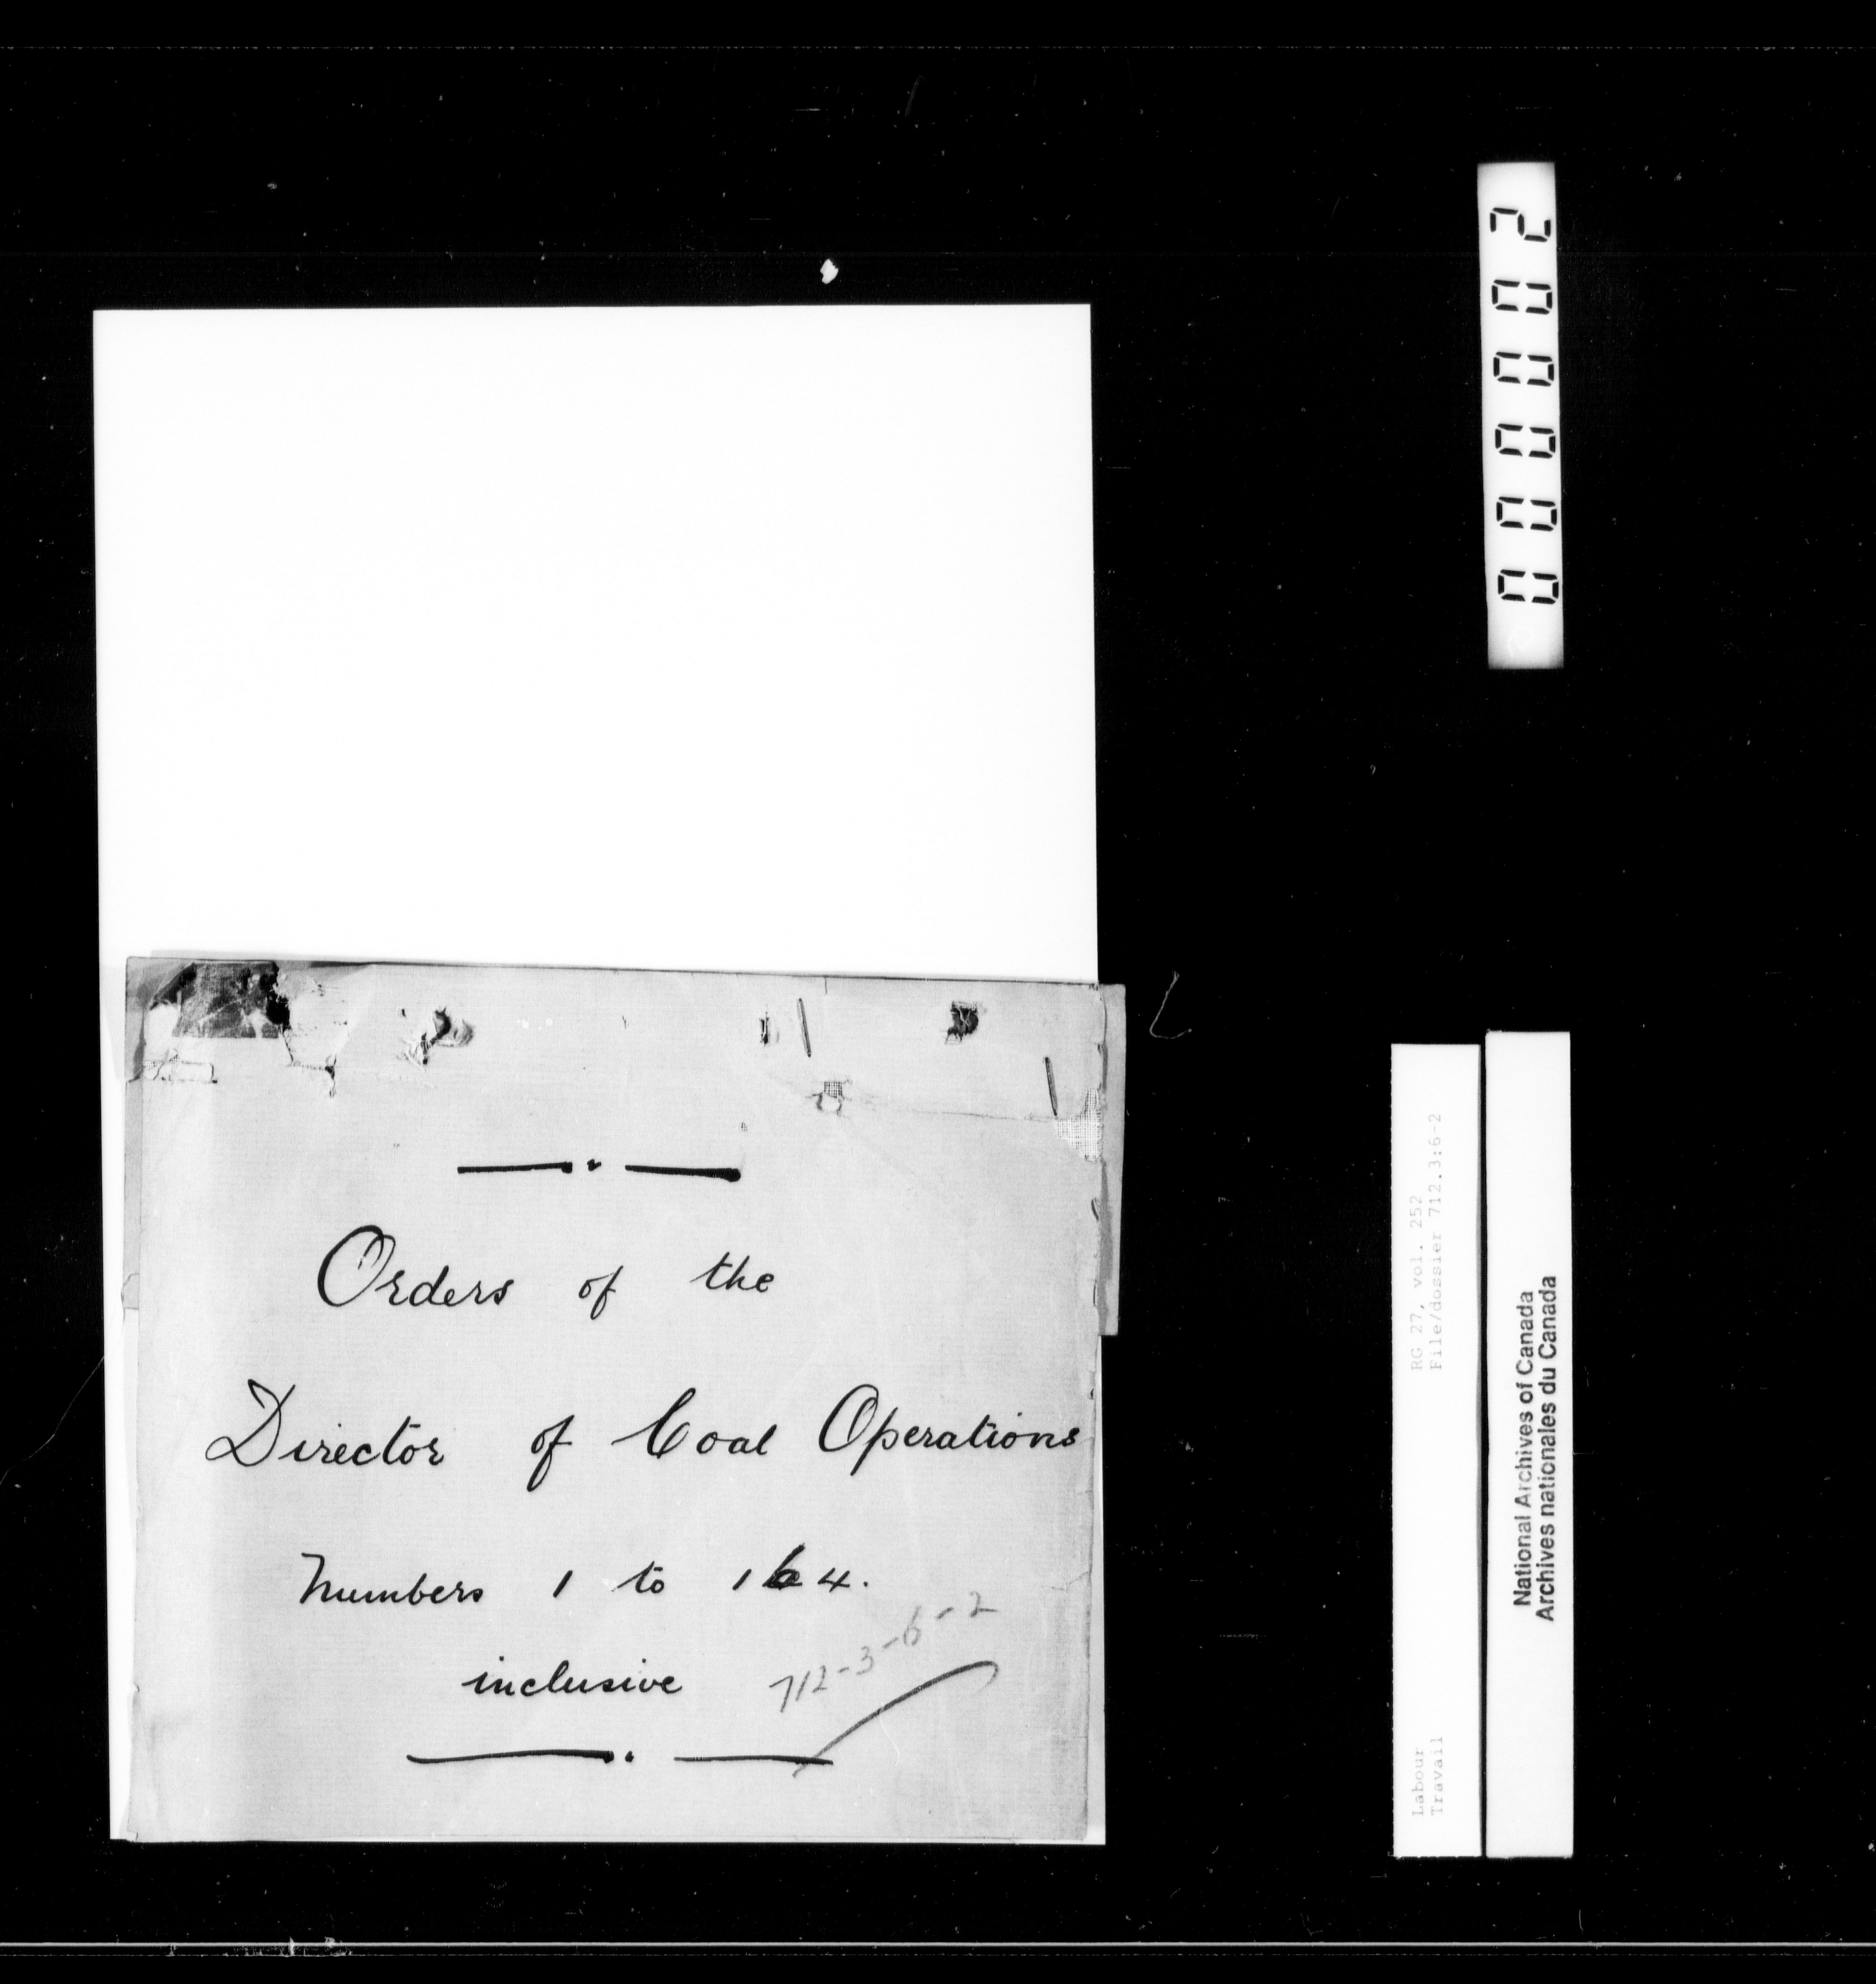 Orders of the
Director of Coal Operations
Numbers 1 to 164.
inclusive
712-3-6-2
000002
RG 27, vol. 252
File/dossier 712.3:6-2
Labour
Travail
National Archives of Canada
Archives nationales du Canada